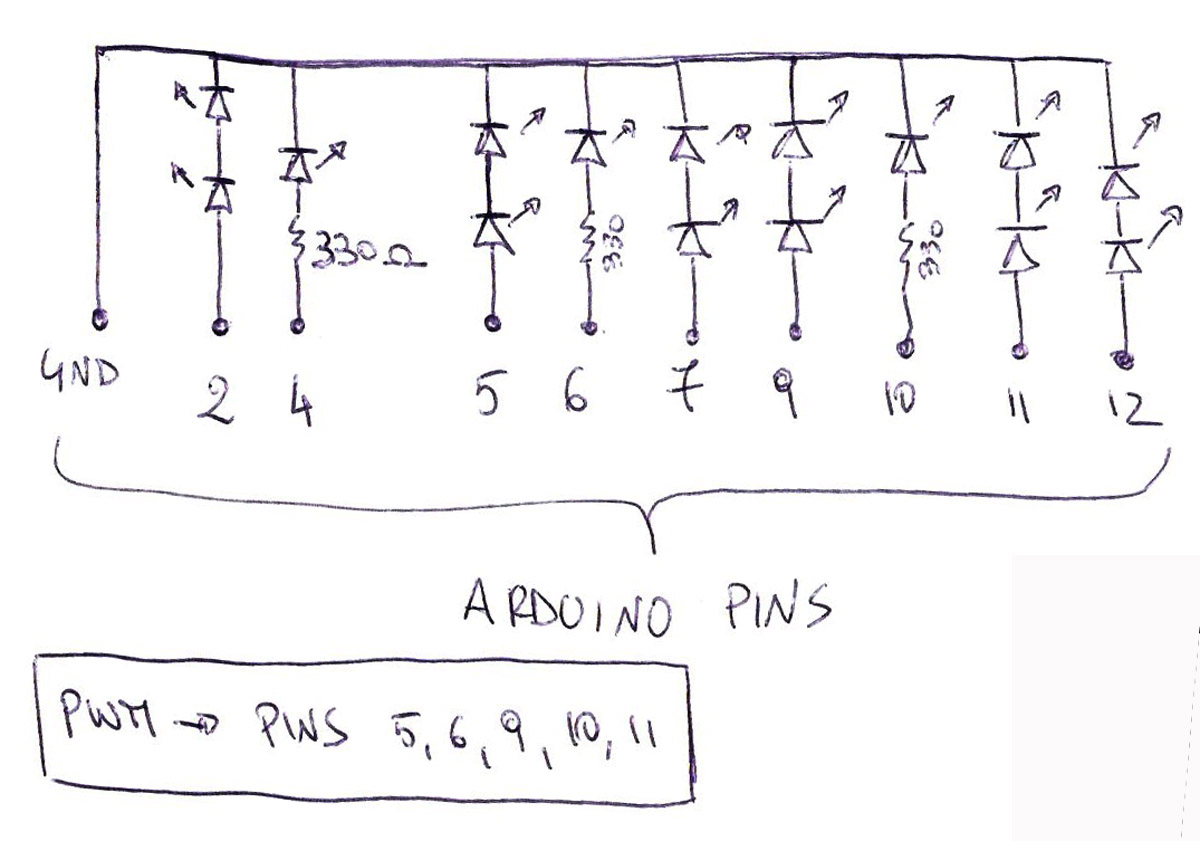 330Ω
330
330
GND
2
4
5
6
7
9
10
11
12
ARDUINO PINS
PWM → PINS 5, 6, 9, 10, 11